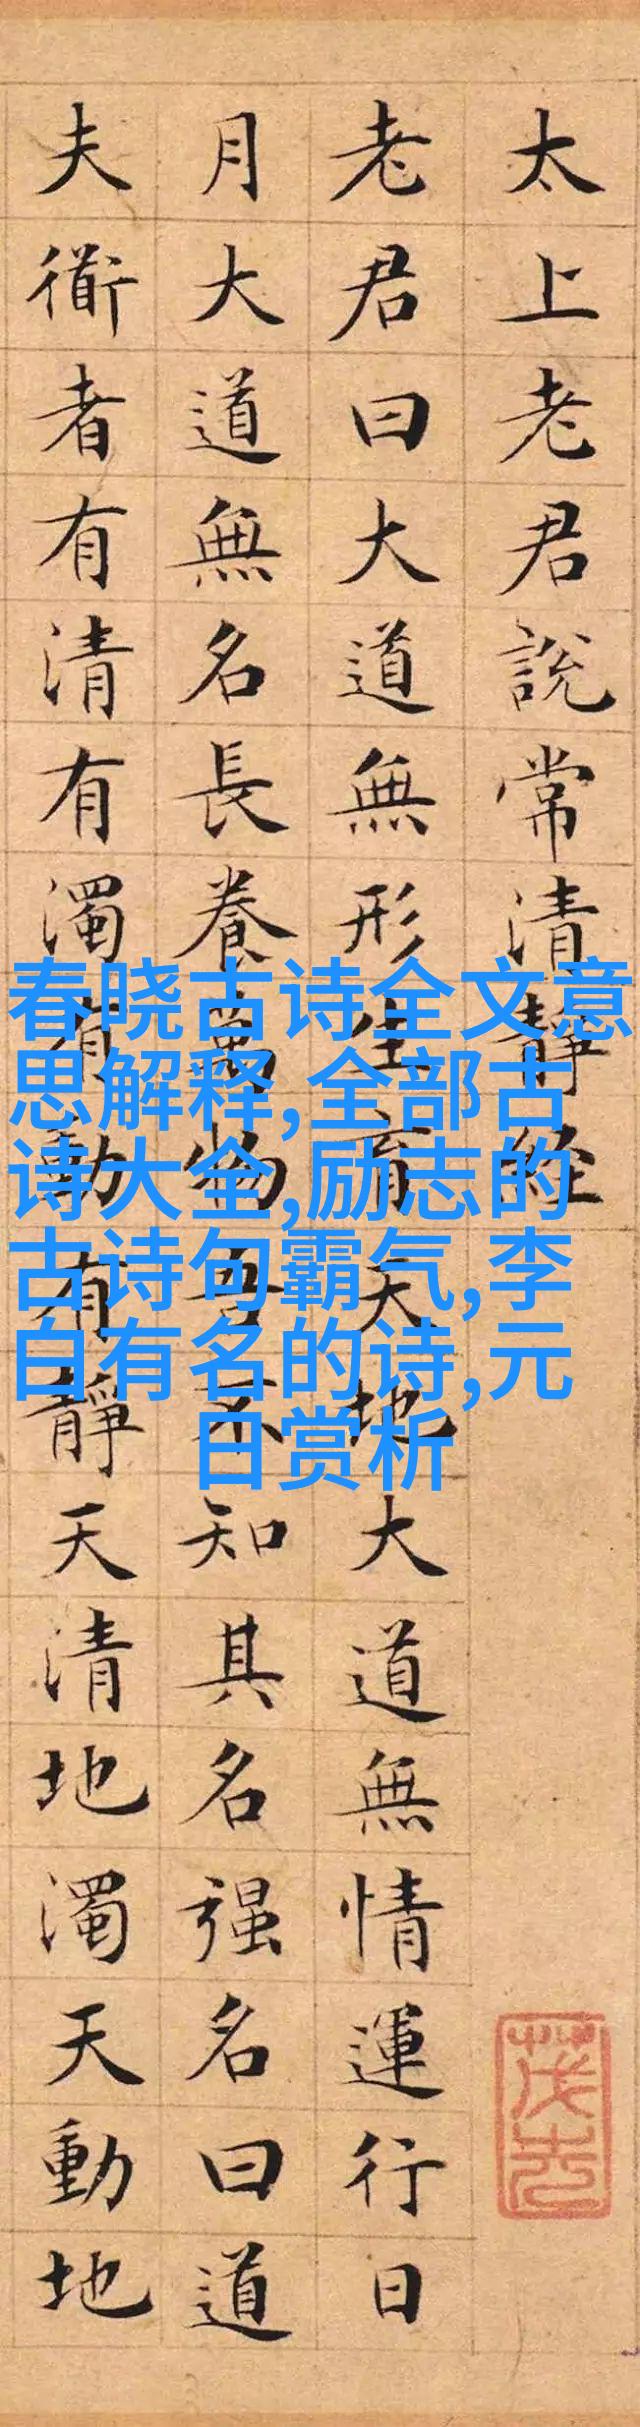 太上老君說常清靜經
老君曰大道無形生育天地大道無情運行日
月大道無名長養萬物吾不知其名强名曰道
夫衜者有清有濁有動有靜天清地濁天動地
春晓古诗全文意
思解释,全部古
诗大全,励志的
古诗句霸气,李
白有名的诗,元
日赏析